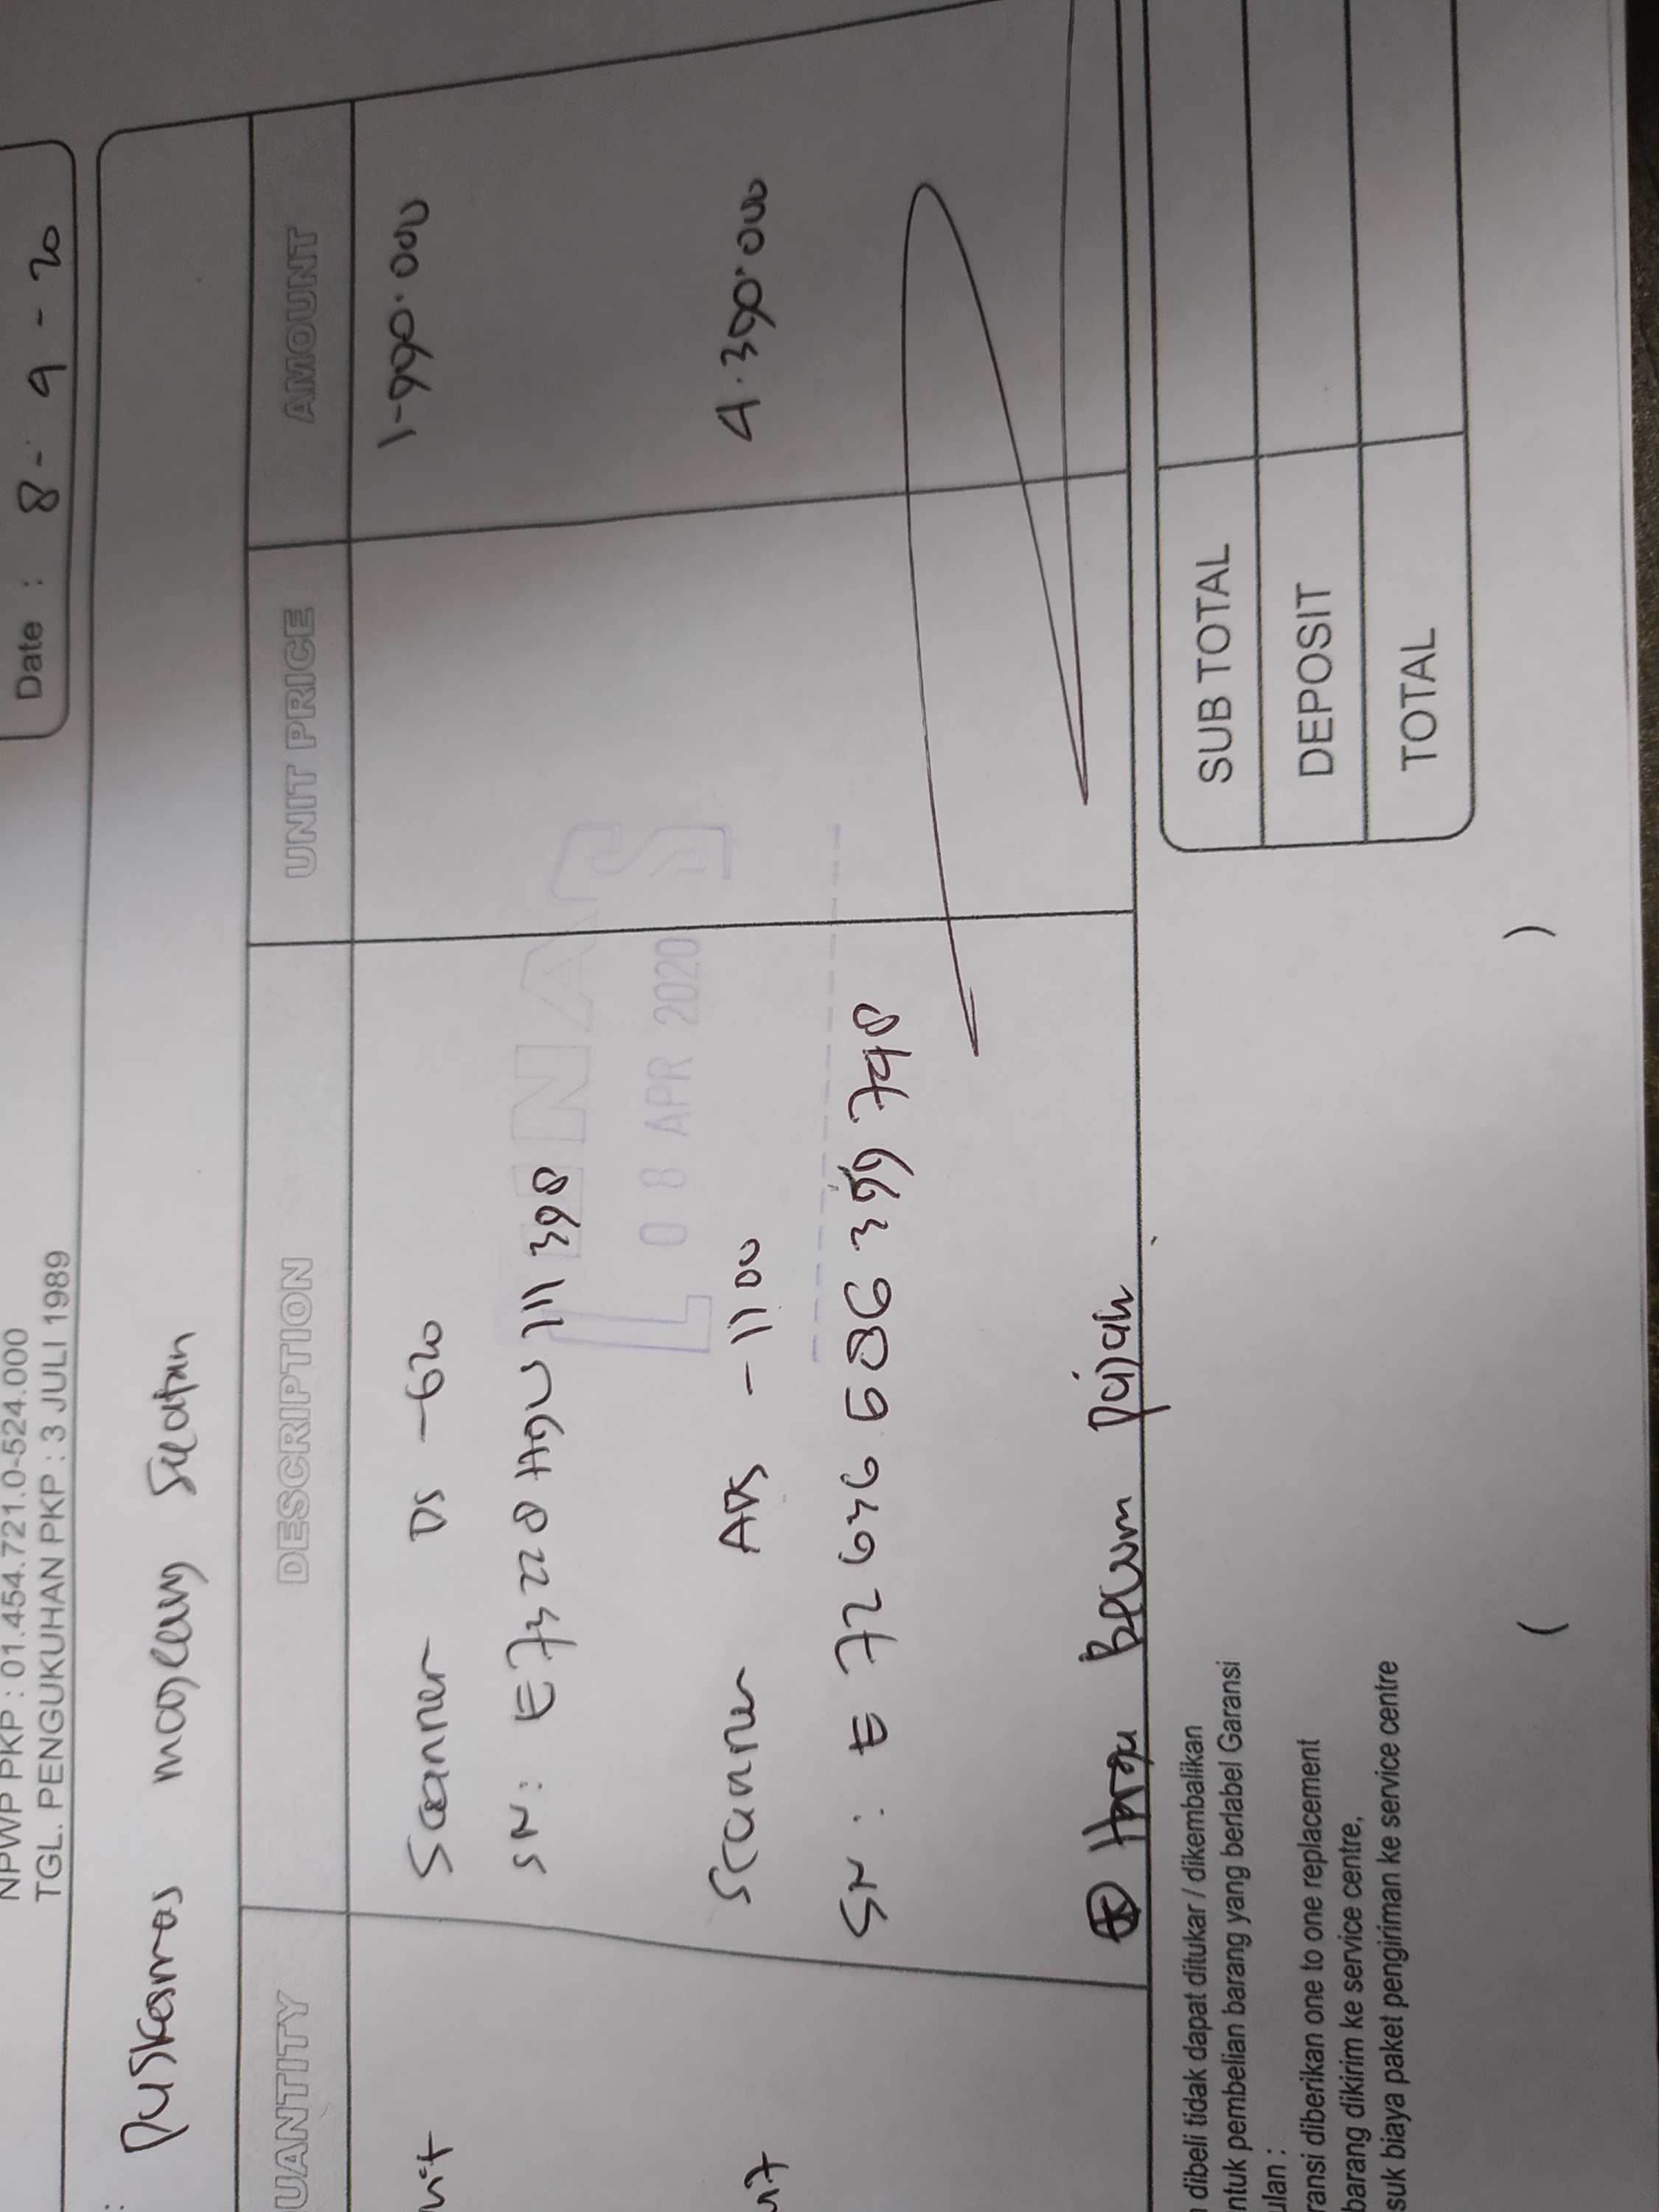 NPWP PKP : 01.454.721.0-524.000
TGL. PENGUKUHAN PKP : 3 JULI 1989
Date : 8 - 4 - 20
: Puskesmas magelang Selatan
UANTITY DESCRIPTION UNIT PRICE AMOUNT
nit Scanner DS - 620 1.990.000
SN : E73220H9U111398
LUNAS
08 APR 2020
nit Scanner ADS - 1100 4.390.000
SN :
Harga Belum Pajak
dibeli tidak dapat ditukar / dikembalikan
ntuk pembelian barang yang berlabel Garansi
ulan :
ransi diberikan one to one replacement
barang dikirim ke service centre,
suk biaya paket pengiriman ke service centre
SUB TOTAL
DEPOSIT
TOTAL
( )